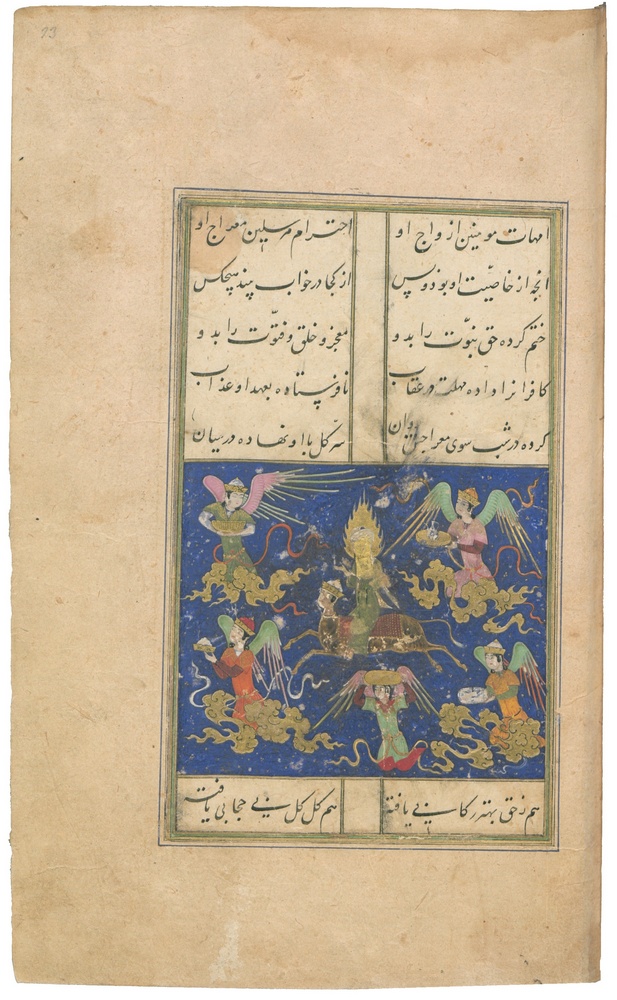 امهات مومنین ازواج او احترام مرسلین معراج او
انچه از خاصیت او بود و بس از کجا در خواب بیند هیچکس
ختم کرده حق نبوّت را بدو معجز و خلق و فتوّت را بدو
کافرانرا داده مهلت در عقاب نافرستاده بعهد او عذاب
کرده در شب سوی معراجش روان سرّ کل با او نهاده در میان
هم ز حق بهتر کتابی یافته هم کل کل بی حجابی یافته